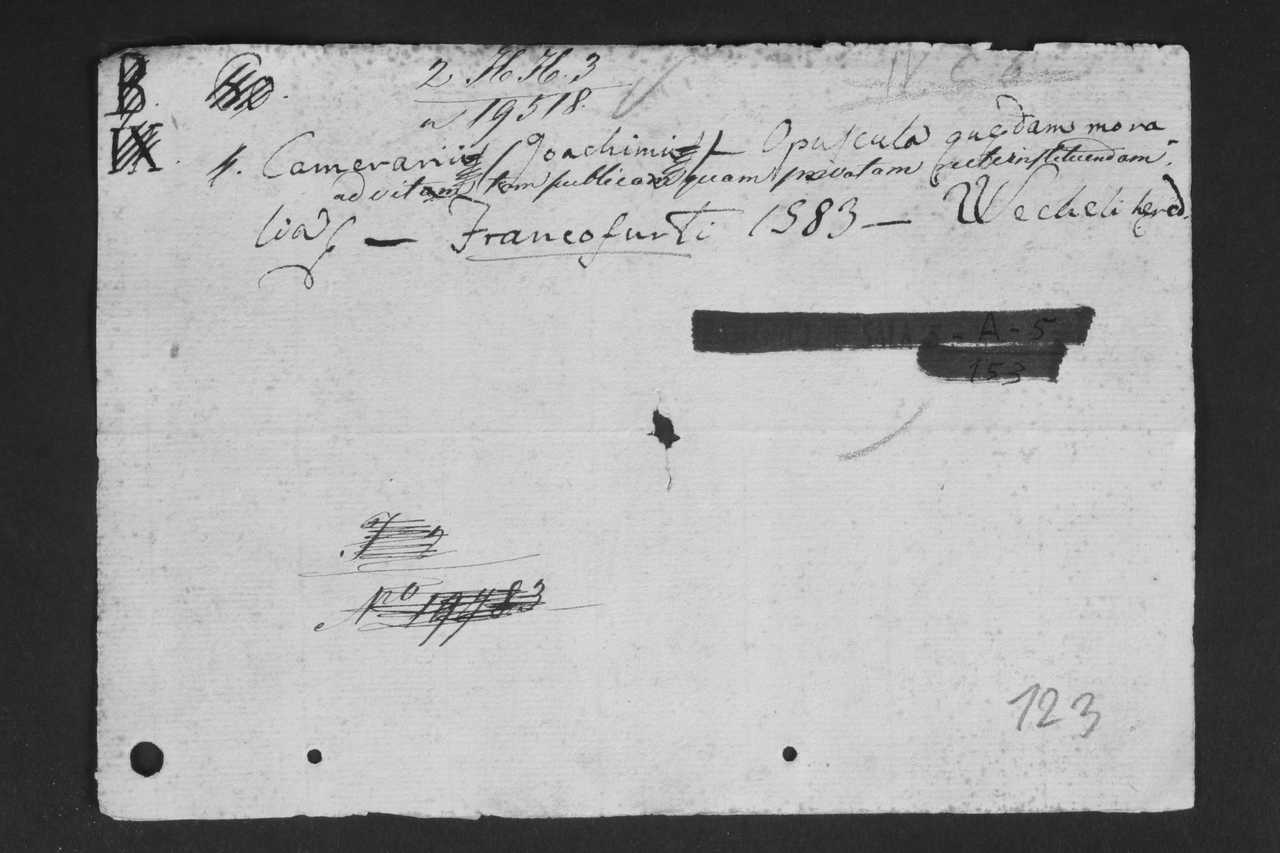 B.
IX.
2 H.H. 3
n 19518
IV C 6
4. Camerarii (Joachimi) — Opuscula quędam mora
ad vitam tam publicam quam privatam recte instituendam.
lia — Francofurti 1583 — Wecheli hered.
A - 5
153
F 2
Nº
123